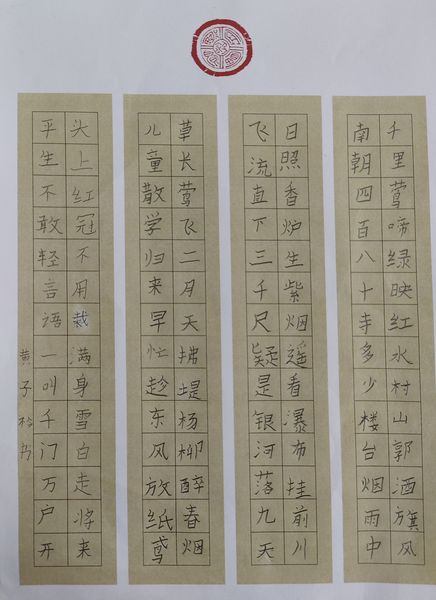 千里莺啼绿映红水村山郭酒旗风
南朝四百八十寺多少楼台烟雨中
日照香炉生紫烟遥看瀑布挂前川
飞流直下三千尺疑是银河落九天
草长莺飞二月天拂堤杨柳醉春烟
儿童散学归来早忙趁东风放纸鸢
头上红冠不用栽满身雪白走将来
平生不敢轻言语一叫千门万户开
黄子书